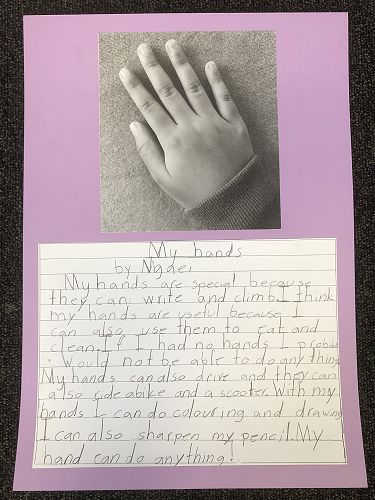 My hands
by Ngaei
My hands are special because
they can write and climb. I think
my hands are useful because I
can also use them to eat and
clean. If I had no hands I probab
would not be able to do any thing.
My hands can also drive and they can
also ride a bike and a scooter. With my
hands I can do colouring and drawing
I can also sharpen my pencil. My
hand can do anything!